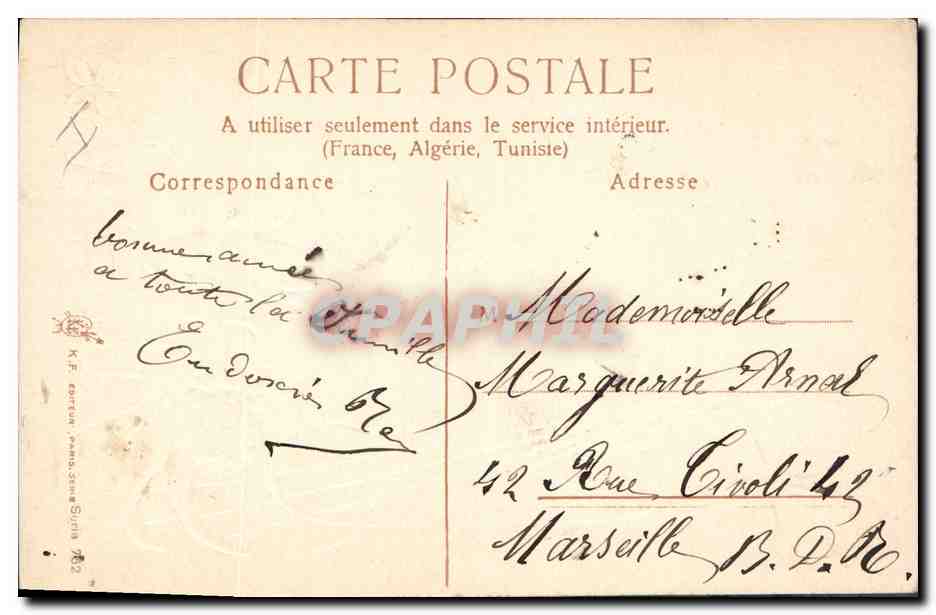 CARTE POSTALE
A utiliser seulement dans le service intérieur.
(France, Algérie, Tunisie)
Correspondance
Adresse
bonne année
a toute la famille
Eudoxie
Mademoiselle
Marguerite Arnal
42 Rue Tivoli 42
Marseille B. D. R.
K.F. EDITEUR, PARIS. SERIE
CPAPHIL